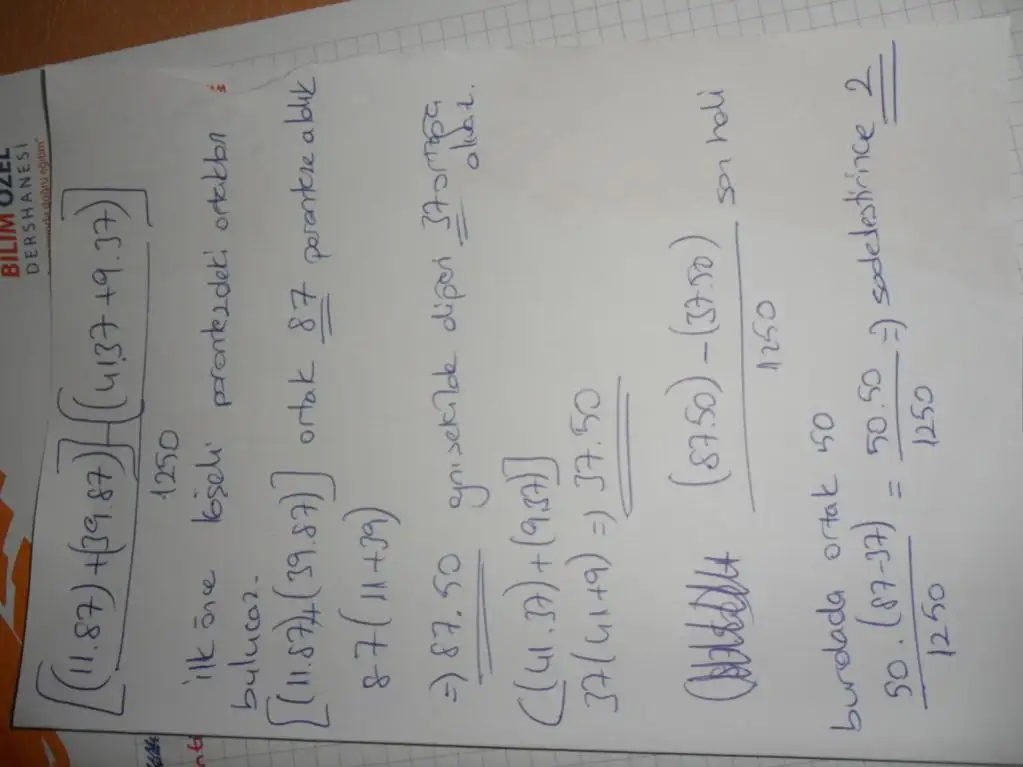 BİLİM ÖZEL
DERSHANESİ
[(11.87)+(39.87)]-[(41.37+9.37)]
1250
ilk önce köşeli parantezdeki ortakları
bulucaz.
[(11.87)+(39.87)] ortak 87 paranteze aldık
87(11+39)
=) 87.50 aynı şekilde diğeri 37 ortağa
alırız.
[(41.37)+(9.37)]
37(41+9) =) 37.50
(87.50)-(37.50) son hali
1250
burdada ortak 50
50.(87-37) = 50.50 =) sadeleştirince 2
1250 1250